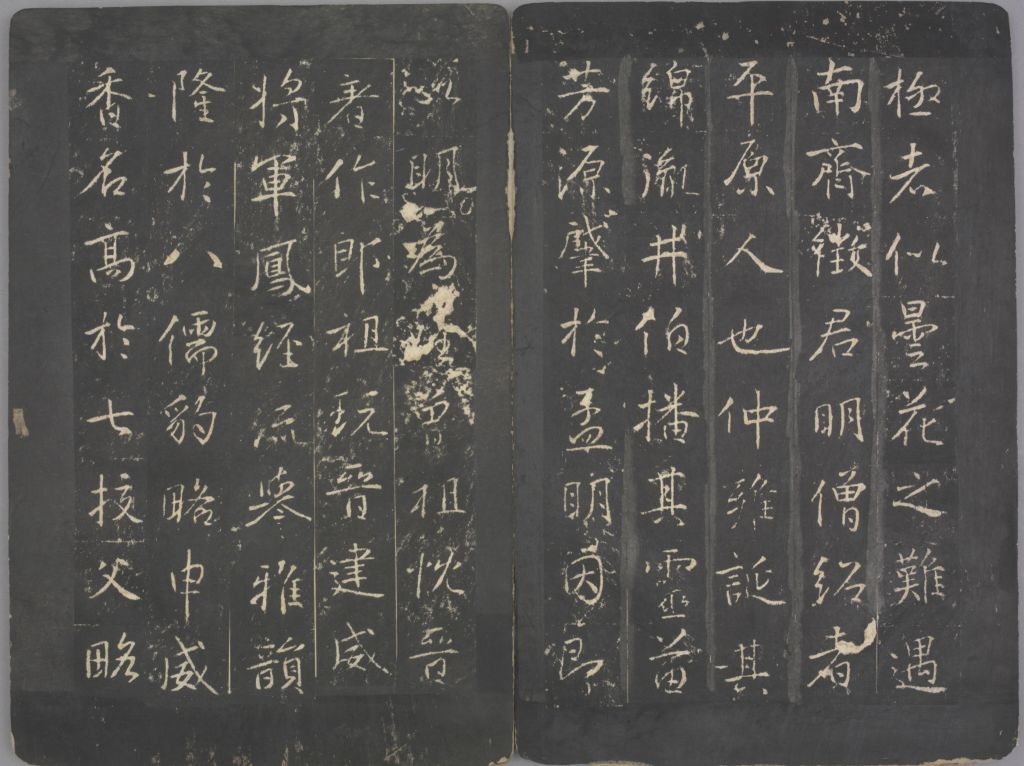 極者似曇花之難遇
南齊徵君明僧紹者
平原人也仲雍誕其
綿井伯播其靈苗
芳源肇於孟明因即
明為姓曾祖忱晉
著作郎祖玩晉建威
將軍鳳經流譽雅韻
隆於八儒豹略申威
香名高於七校父略